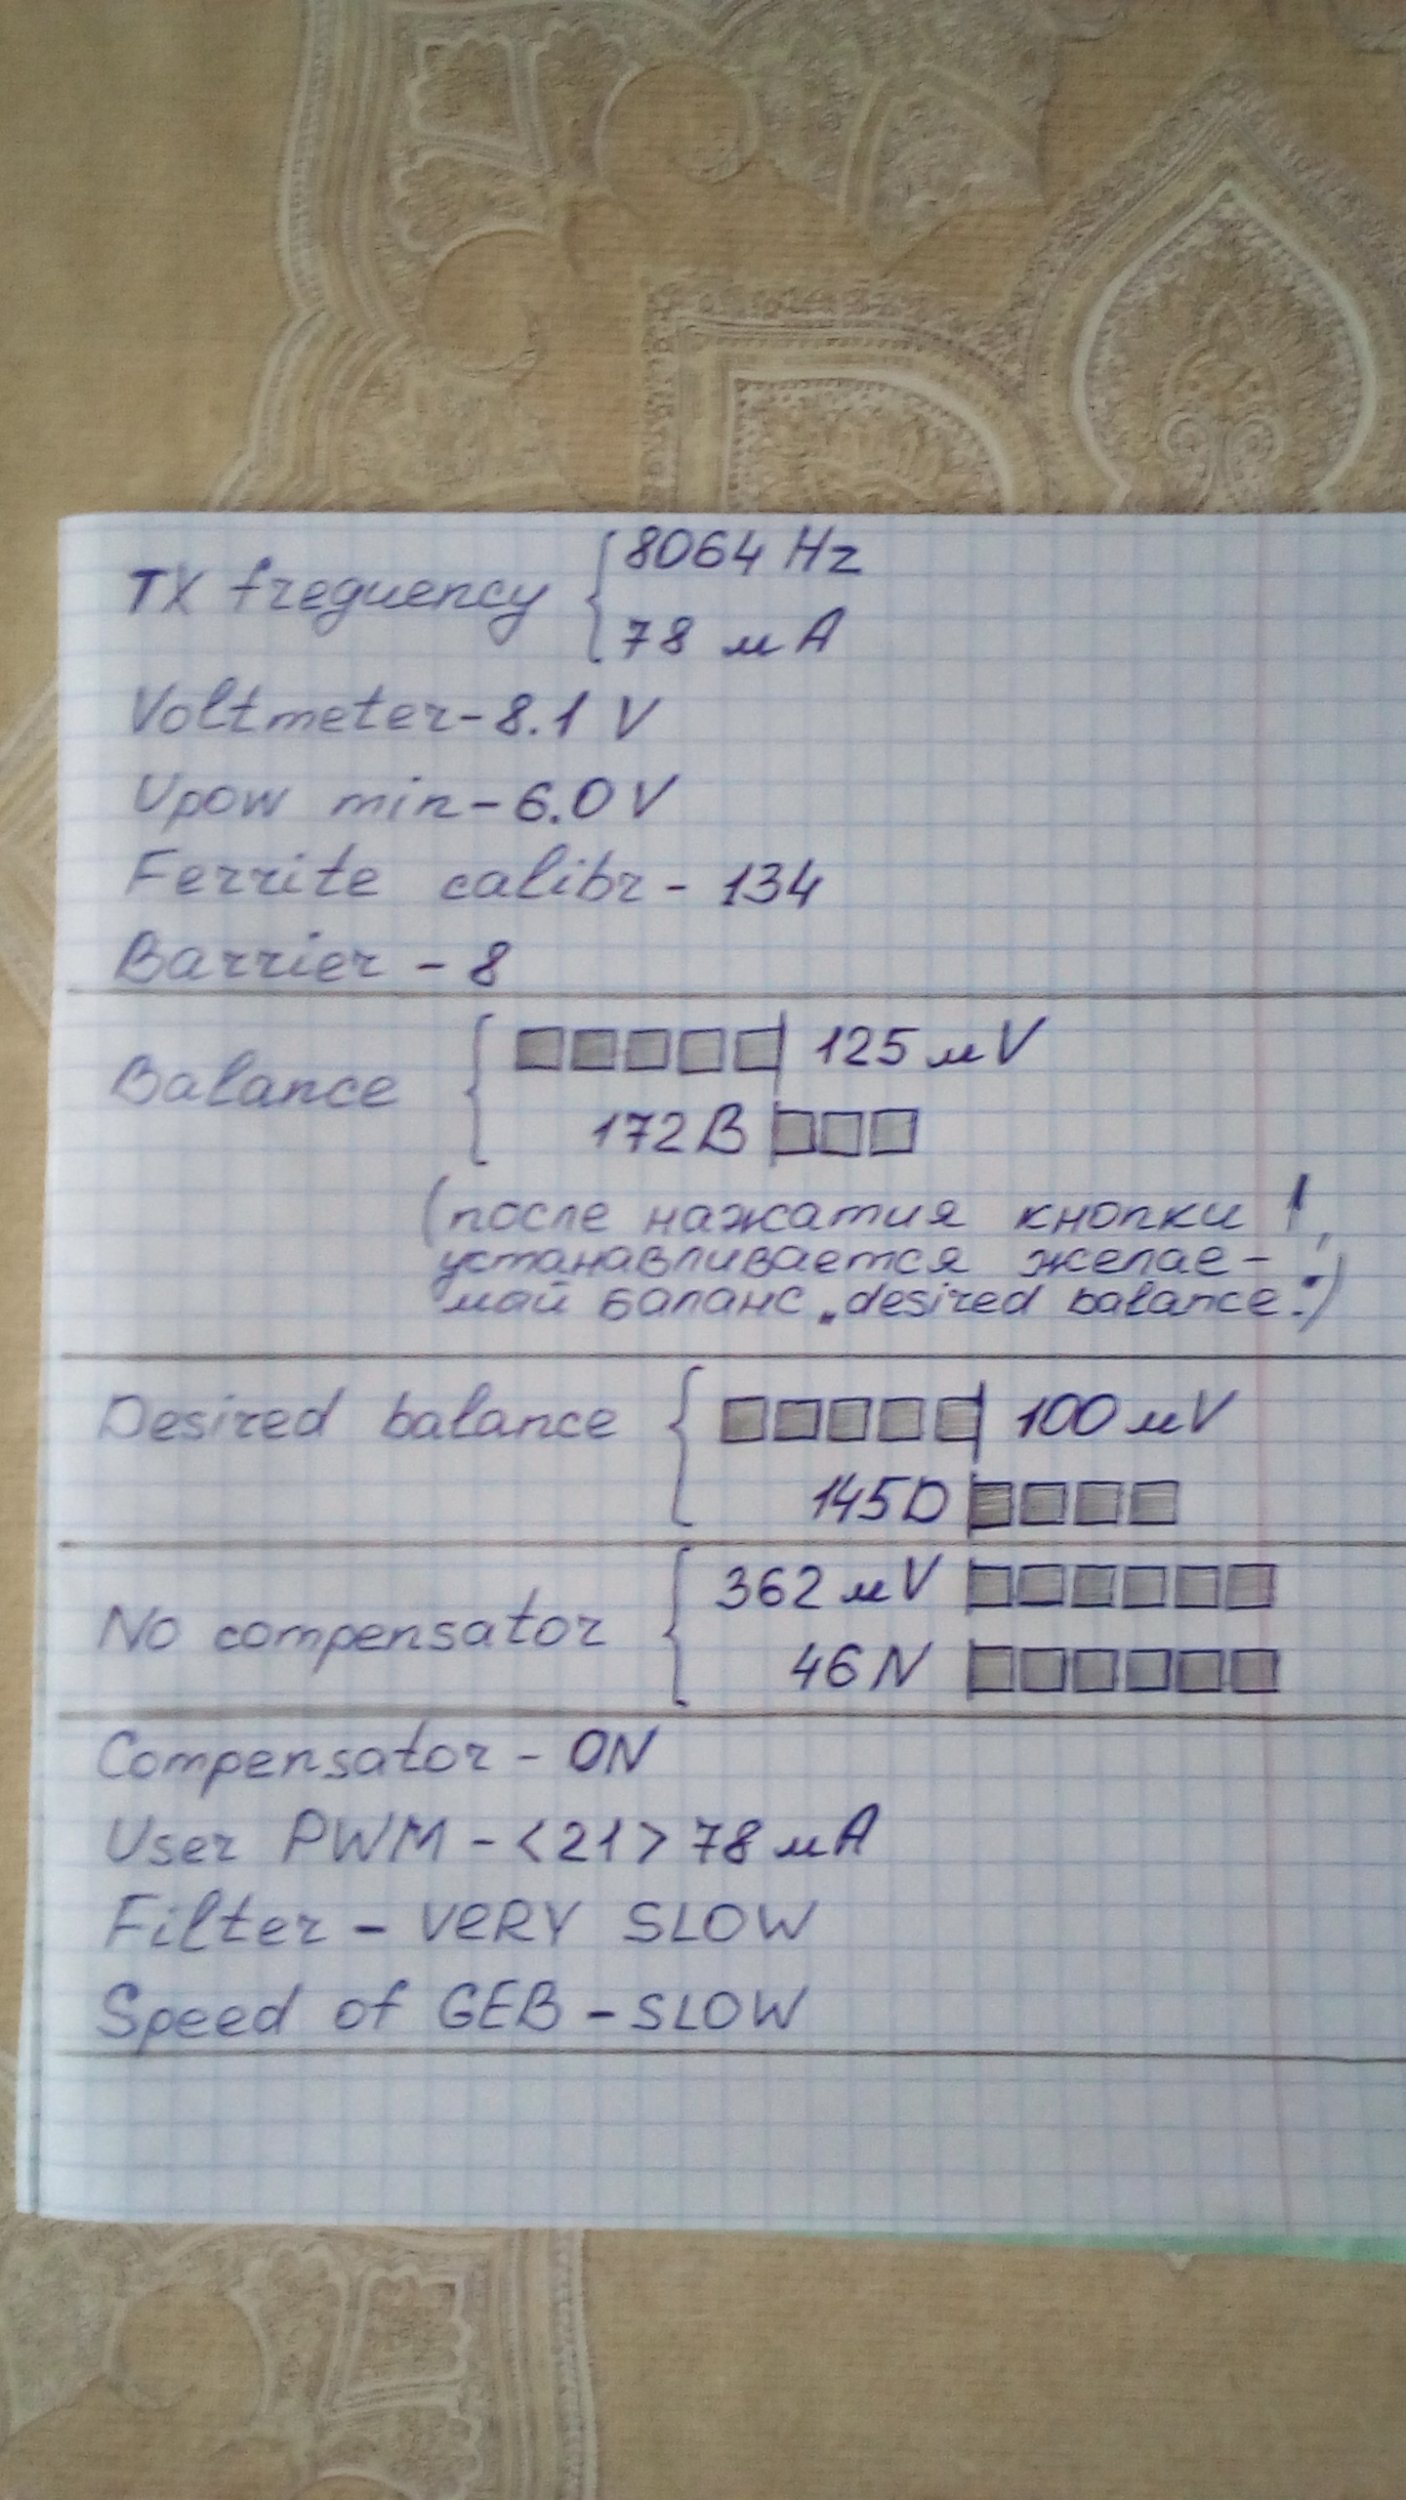 TX freguency
8064 Hz
78 мA
Voltmeter-8.1 V
Upow min-6.0V
Ferrite calibr - 134
Barrier - 8
Balance
125 мV
172B
(после нажатия кнопки !,
устанавливается желае-
май баланс „desired balance.")
Desired balance
100 мV
145D
No compensator
362 мV
46N
Compensator - ON
User PWM - <21> 78 мA
Filter - VERY SLOW
Speed of GEB - SLOW